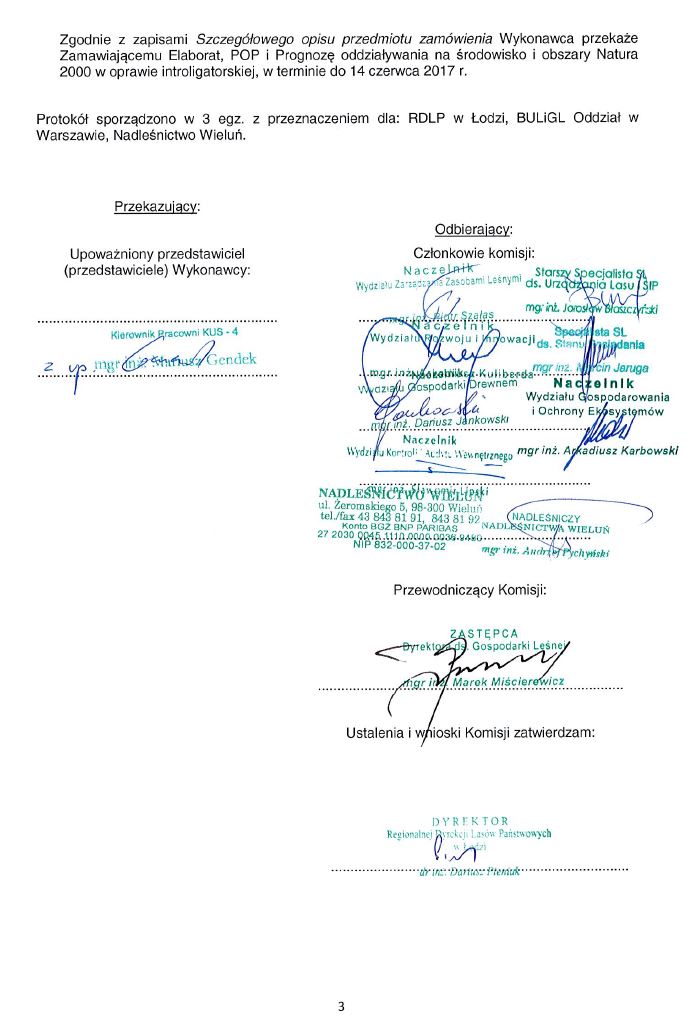 Zgodnie z zapisami Szczegółowego opisu przedmiotu zamówienia Wykonawca przekaże
Zamawiającemu Elaborat, POP i Prognozę oddziaływania na środowisko i obszary Natura
2000 w oprawie introligatorskiej, w terminie do 14 czerwca 2017 r.
Protokół sporządzono w 3 egz. z przeznaczeniem dla: RDLP w Łodzi, BULiGL Oddział w
Warszawie, Nadleśnictwo Wieluń.
Przekazujący:
Upoważniony przedstawiciel
(przedstawiciele) Wykonawcy:
Kierownik Pracowni KUS - 4
z up mgr inż. Mariusz Gendek
Odbierający:
Członkowie komisji:
Naczelnik
Wydziału Zarządzania Zasobami Leśnymi
mgr inż. Piotr Szalas
Starszy Specjalista SL
ds. Urządzania Lasu i SIP
mgr inż. Jarosław Błaszczyński
Naczelnik
Wydziału Rozwoju i Innowacji
mgr inż. Kuliberda
Specjalista SL
ds. Stanu Posiadania
mgr inż. Marcin Jaruga
Naczelnik
Wydziału Gospodarki Drewnem
mgr inż. Dariusz Jankowski
Naczelnik
Wydziału Gospodarowania
i Ochrony Ekosystemów
mgr inż. Arkadiusz Karbowski
Naczelnik
Wydziału Kontroli i Audytu Wewnętrznego
mgr inż. Sławomir Lipski
NADLEŚNICTWO WIELUŃ
ul. Żeromskiego 5, 98-300 Wieluń
tel./fax 43 843 81 91, 843 81 92
Konto BGŻ BNP PARIBAS
27 2030 0045 1110 0000
NIP 832-000-37-02
NADLEŚNICZY
NADLEŚNICTWA WIELUŃ
mgr inż. Andrzej Pychyński
Przewodniczący Komisji:
ZASTĘPCA
Dyrektora ds. Gospodarki Leśnej
mgr inż. Marek Miścierewicz
Ustalenia i wnioski Komisji zatwierdzam:
DYREKTOR
Regionalnej Dyrekcji Lasów Państwowych
w Łodzi
dr inż. Dariusz Pieniak
3